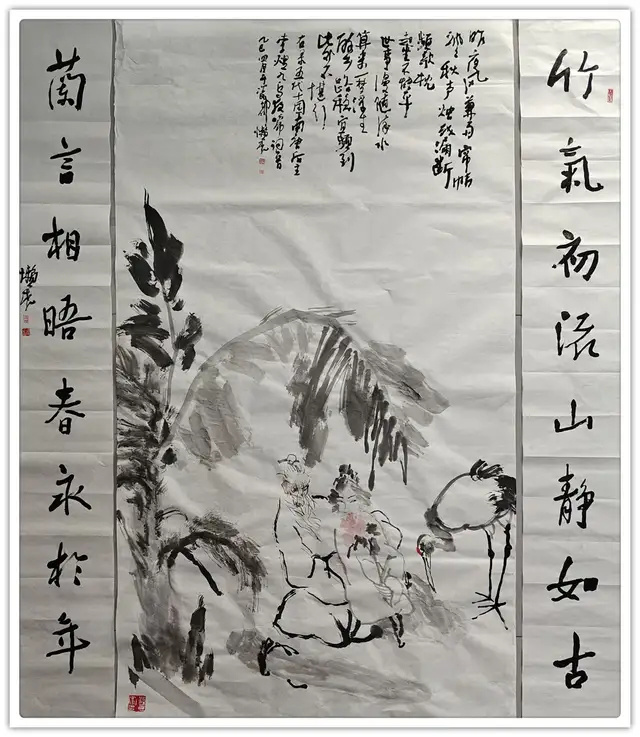 竹氣初流山靜如古
昨夜风兼雨帘帏
飒々秋声烛残漏断
频欹枕
起坐不能平
世事漫随流水
算来一梦浮生
醉乡路稳宜频到
此外不堪行
五代十国南唐后主
李煜乌夜啼词意
乙巳四月
蘭言相晤春永於年